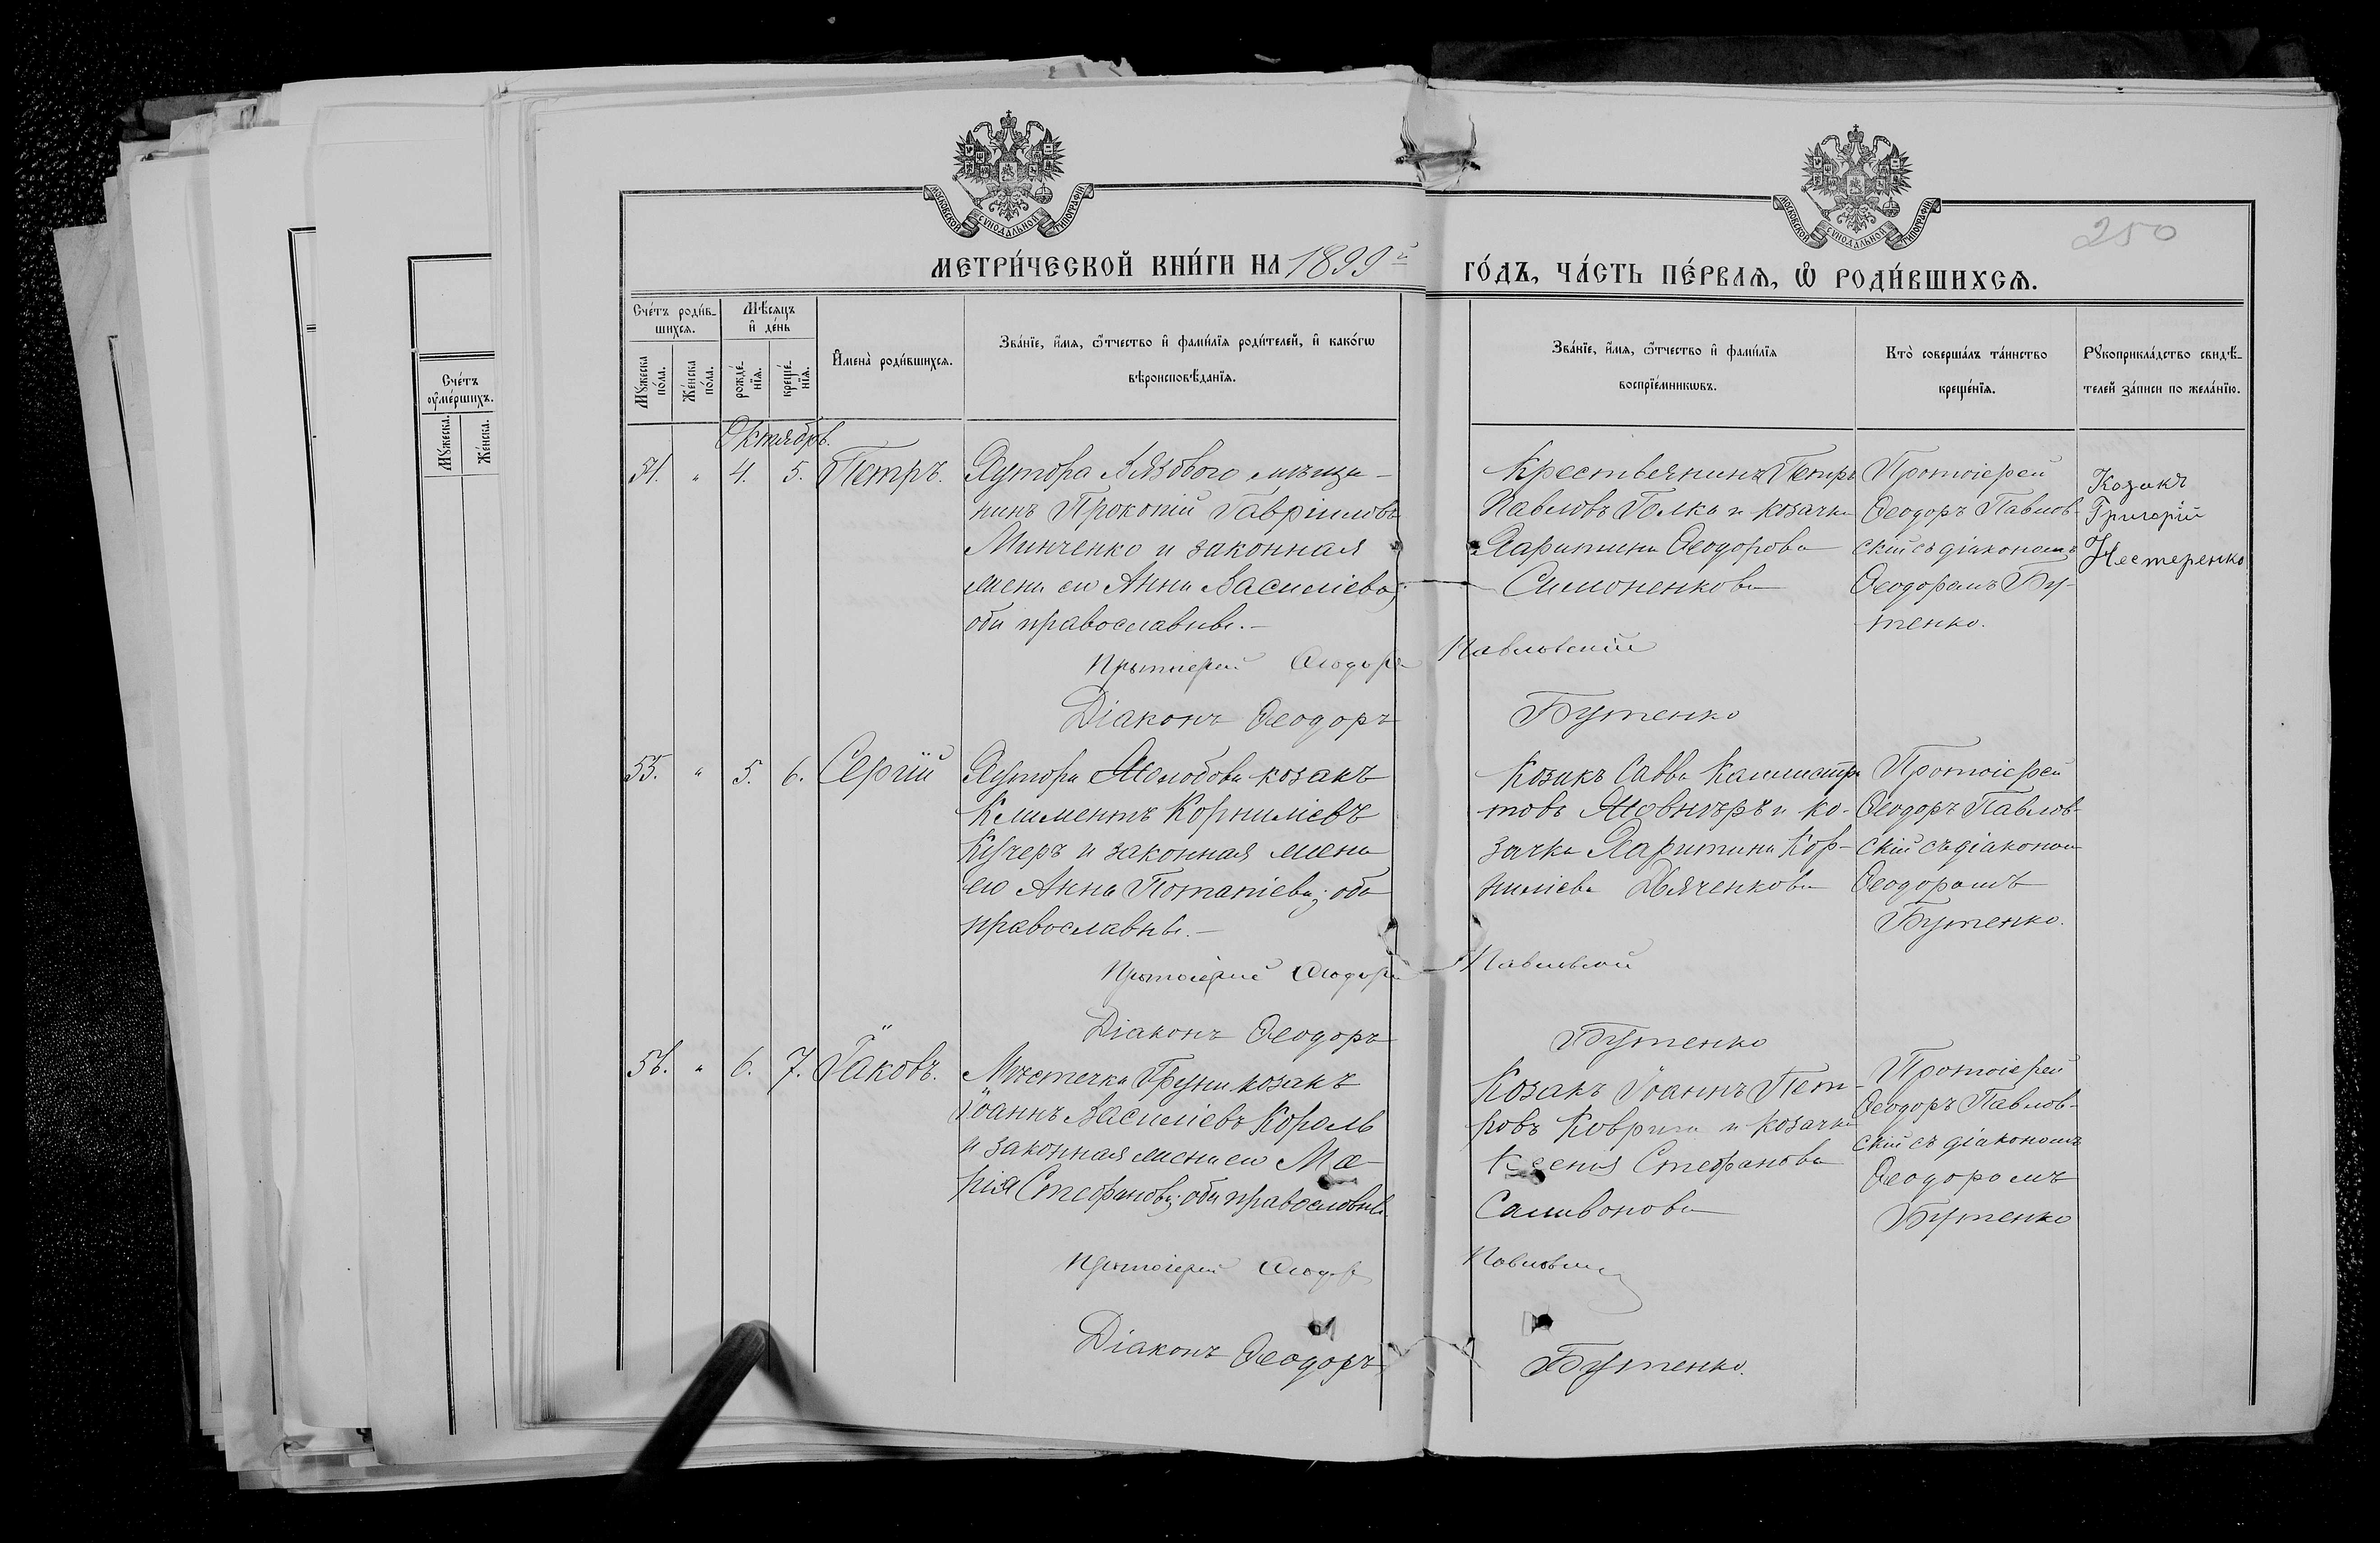 МОСКОВСКОЙ СѴНОДАЛЬНОЙ ТИПОГРАФІИ
МОСКОВСКОЙ СѴНОДАЛЬНОЙ ТИПОГРАФІИ
250
МЕТРИ́ЧЕСКОЙ КНИ́ГИ НА 1899й ГО́ДЪ, ЧА́СТЬ ПЕ́РВАЯ, Ѿ РОДИ́ВШИХСѦ.
Сче́тъ
оумершихъ.
Мꙋжеска.
Же́нска.
Сче́тъ роди́в-
шихсѧ.
Мꙋжеска по́ла.
Же́нска по́ла.
Мѣсѧцъ
и де́нь
рожде́-нїѧ.
креще́-нїѧ.
И҆мена̀ роди́вшихсѧ.
Зва́нїе, и҆́мѧ, ѻ҆́тчество и҆ фами́лїѧ роди́телей, и҆ како́гѡ
вѣроисповѣ́данїѧ.
Зва́нїе, и҆́мѧ, ѻ҆́тчество и҆ фами́лїѧ
воспрїе́мникѡвъ.
Кто̀ соверша́лъ та́инство
креще́нїѧ.
Рꙋкоприкла́дство свидѣ́-
телей за́писи по жела́нїю.
Октябрь.
54. " 4. 5. Петръ.
Хутора Вязоваго мѣща-
нинъ Прокопій Гавріиловъ
Минченко и законная
жена его Анна Василіева;
оба православны.-
Крестьянинъ Петръ
Павловъ Голка и козачка
Харитина Ѳеодорова
Симоненкова
Протоіерей
Ѳеодоръ Павлов-
скій съ діакономъ
Ѳеодоромъ Бу-
тенко.
Козакъ
Григорій
Нестеренко
Протоіерей Ѳеодоръ Павловскій
Діаконъ Ѳеодоръ Бутенко
55. " 5. 6. Сергій
Хутора козакъ
Климентъ Корниліевъ
Кучеръ и законная жена
его Анна Потапіева; оба
православны.-
Козакъ Савва Каллистра
товъ Жовниръ и ко-
зачка Харитина Кор-
ниліева Дяченкова
Протоіерей
Ѳеодоръ Павлов-
скій съ діакономъ
Ѳеодоромъ
Бутенко.
Протоіерей Ѳеодоръ Павловскій
Діаконъ Ѳеодоръ Бутенко
56. " 6. 7. Іаковъ.
Мѣстечка Груни козакъ
Іоаннъ Василіевъ Король
и законная жена его Ма-
рія Стефанова; оба православны.
Козакъ Іоаннъ Пет-
ровъ Коврига и козачка
Ксенія Стефанова
Саливонова
Протоіерей
Ѳеодоръ Павлов-
скій съ діакономъ
Ѳеодоромъ
Бутенко
Протоіерей Ѳеодоръ Павловскій
Діаконъ Ѳеодоръ Бутенко.